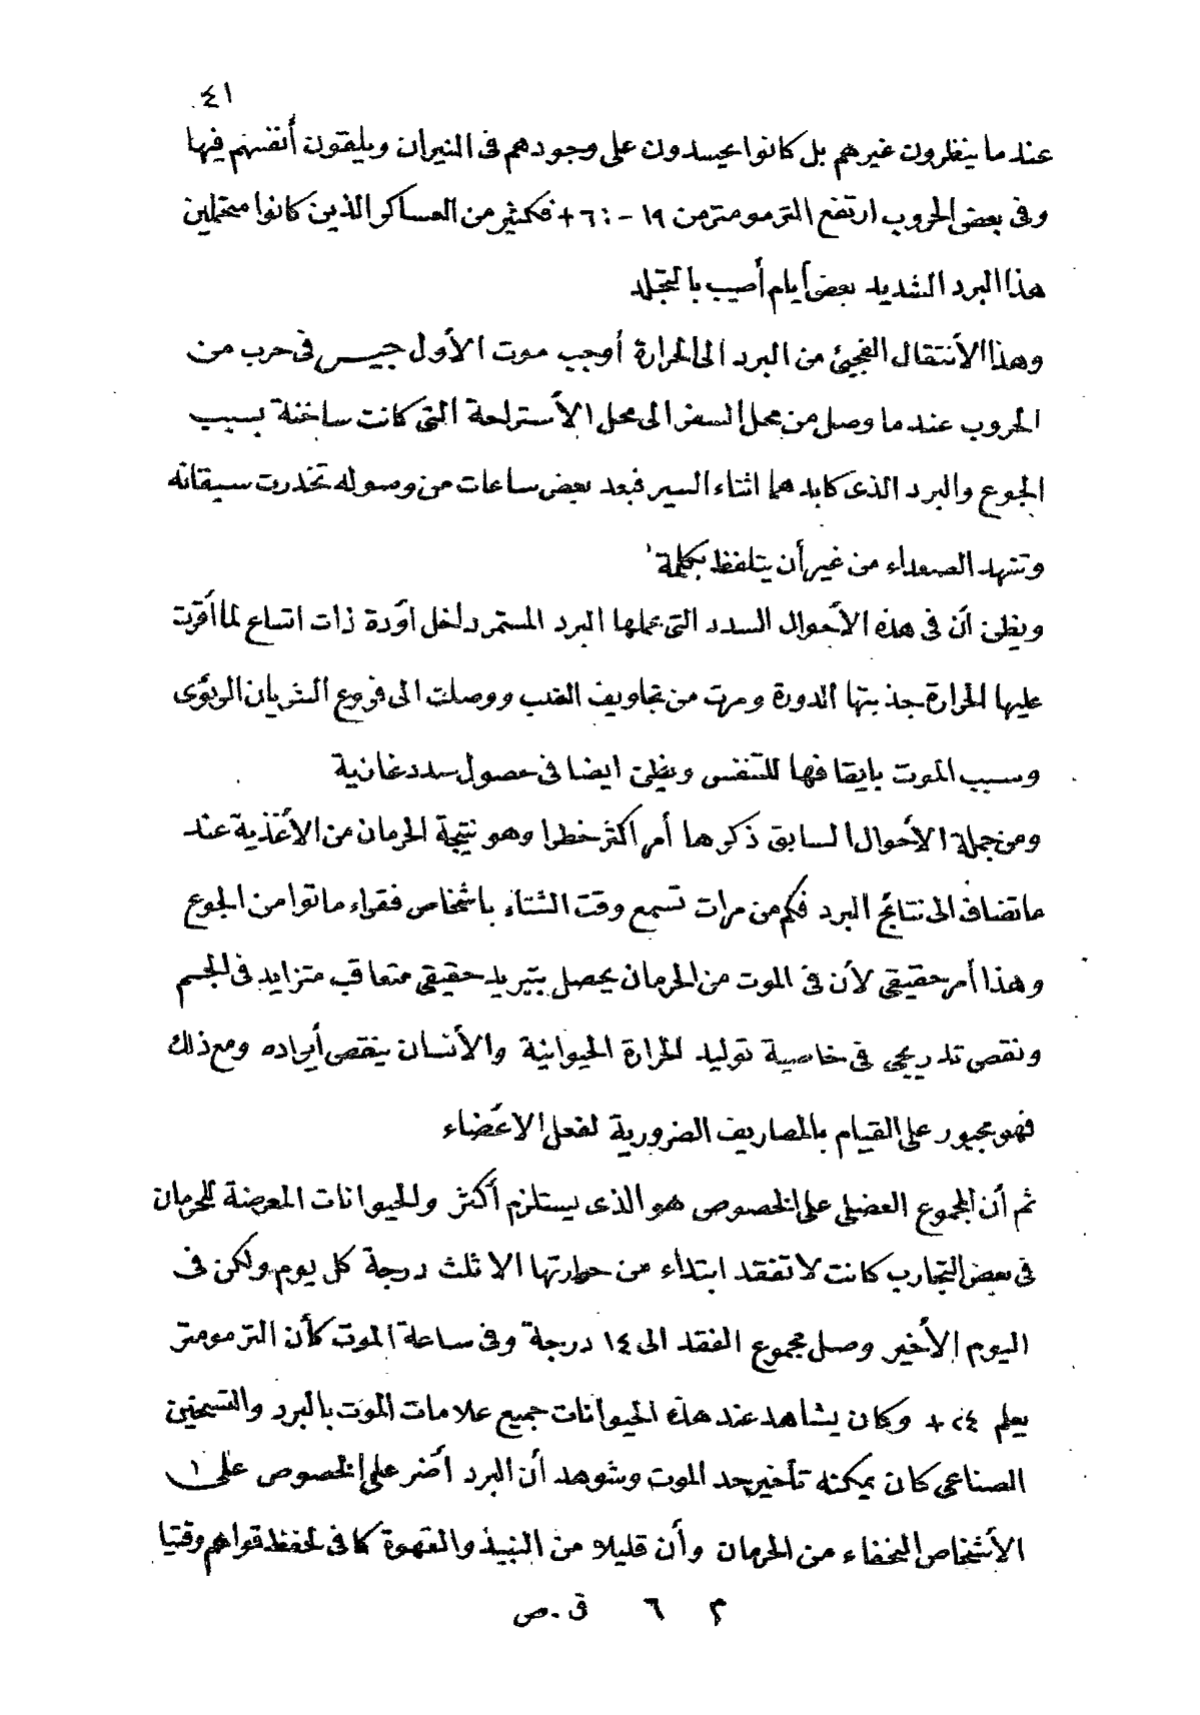 ٤١
عند ما ينظرون غيرهم بل كانوا يحسدون على وجودهم فى النيران ويلقون أنفسهم فيها
وفى بعض الحروب ارتفع الترمومتر من ١٩ - : ٦ + فكثير من العساكر الذين كانوا متحملين
هذا البرد الشديد بعض أيام أصيب بالتجلد
وهذا الأنتقال الفجيئ من البرد الى الحرارة أوجب موت الأول جيس فى حرب من
الحروب عند ما وصل من محل السفر الى محل الأستراحة التى كانت ساخنة بسبب
الجوع والبرد الذى كابدهما اثناء السير فبعد بعض ساعات من وصوله تخدرت سيقانه
وتنهد الصعداء من غير أن يتلفظ بكلمة
ويظن أن فى هذه الأحوال السدد التى عملها البرد المستمر داخل أودة ذات اتساع لما أقرت
عليها الحرارة جذبتها الدورة ومرت من تجاويف القلب ووصلت الى فروع الشريان الرئوى
وسبب الموت بايقافها للتنفس ويظن ايضا فى حصول سدد غانية
ومن جملة الأحوال السابق ذكرها أمر اكثر خطرا وهو نتيجة الحرمان من الأغذية عند
ما تضاف الى نتائج البرد فكم من مرات تسمع وقت الشتاء باشخاص فقراء ماتوا من الجوع
وهذا أمر حقيقى لأن فى الموت من الحرمان يحصل تبريد حقيقى متعاقب متزايد فى الجسم
ونقص تدريجى فى خاصية توليد الحرارة الحيوانية والأنسان ينقص أيراده ومع ذلك
فهو مجبور على القيام بالمصاريف الضرورية لفعل الاعضاء
ثم أن المجموع العضلى على الخصوص هو الذى يستلزم أكثر والحيوانات المعرضة للحرمان
فى بعض التجارب كانت لا تفقد ابتداء من حرارتها الا ثلث درجة كل يوم ولكن فى
اليوم الأخير وصل مجموع الفقد الى ١٤ درجة وفى ساعة الموت كأن الترمومتر
يعلم ٢٤ + وكان يشاهد عند هذه الحيوانات جميع علامات الموت بالبرد والتسخين
الصناعى كان يمكنه تأخير حد الموت وشوهد أن البرد أضر على الخصوص على
الأشخاص النخفاء من الحرمان وأن قليلا من النبيذ والقهوة كافى لحفظ قواهم وقتيا
م ٦ ق . ص